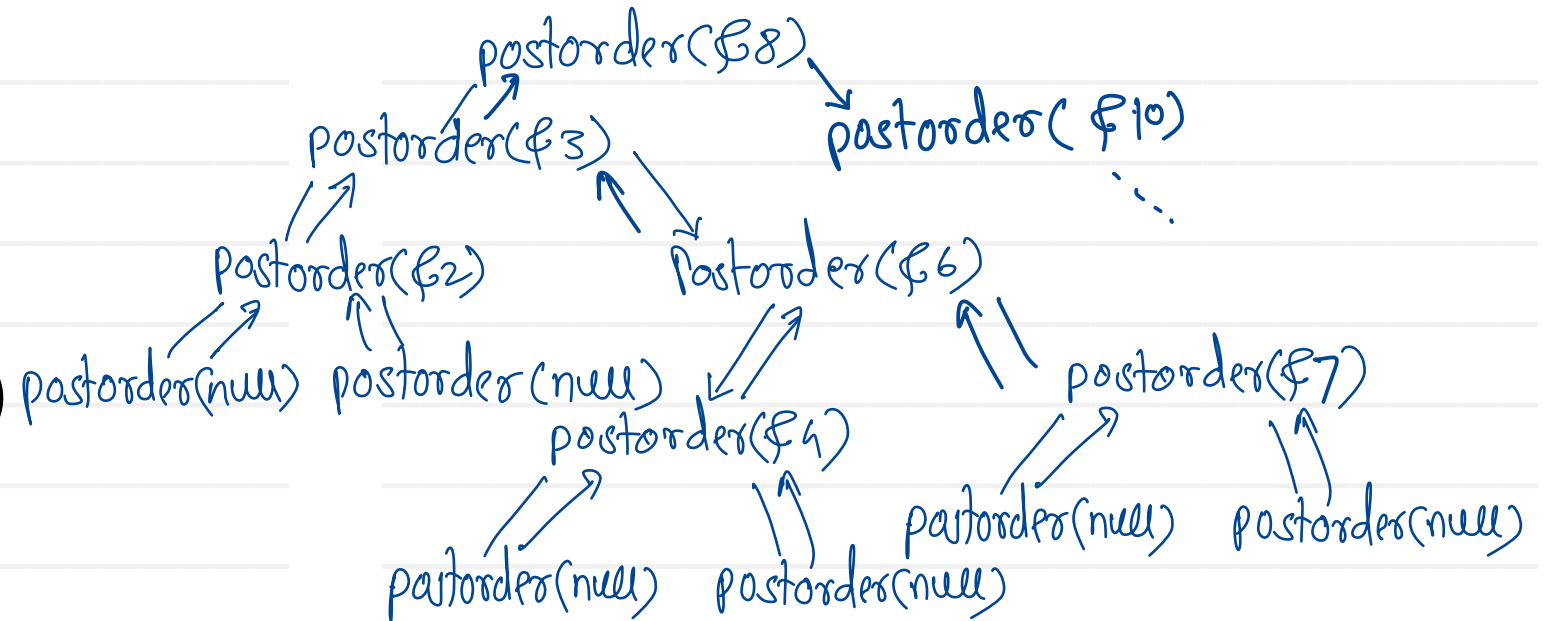 postorder(&8)
postorder(&3)
postorder(&10)
postorder(&2)
Postorder(&6)
postorder(null)
postorder(null)
postorder(&7)
postorder(&4)
postorder(null)
postorder(null)
postorder(null)
postorder(null)